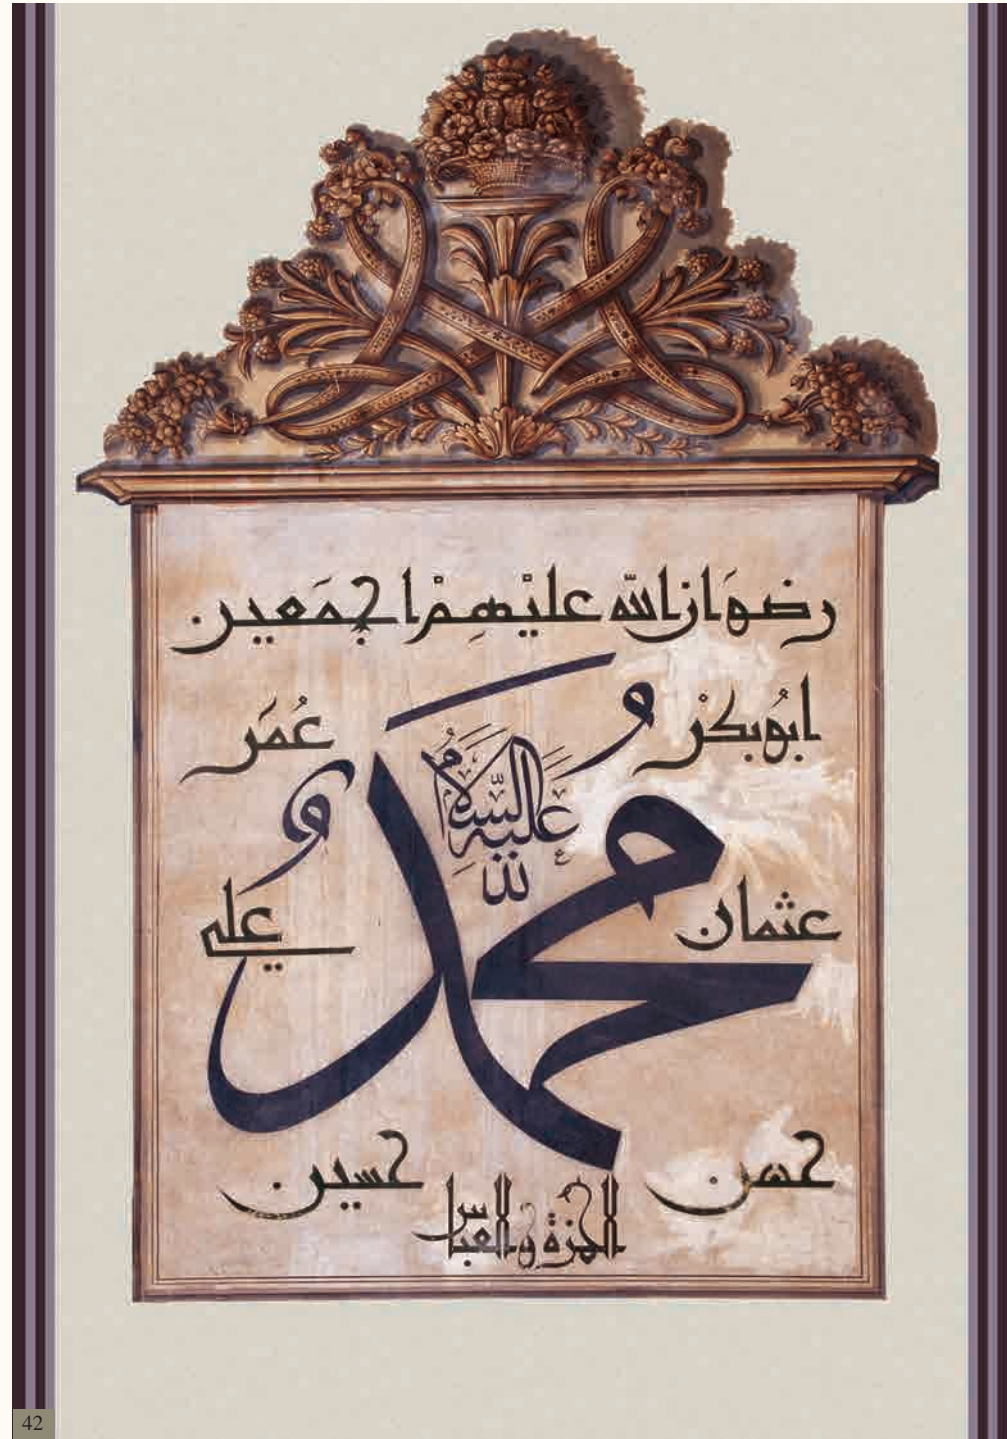 رضوَان اللّه عليْهِمْ اجمَعين
ابُوبكرْ
عُمَر
محمد
عَليه السّلامُ
عثمان
عَلي
حسن
حسين
الحمزة والعباس
42